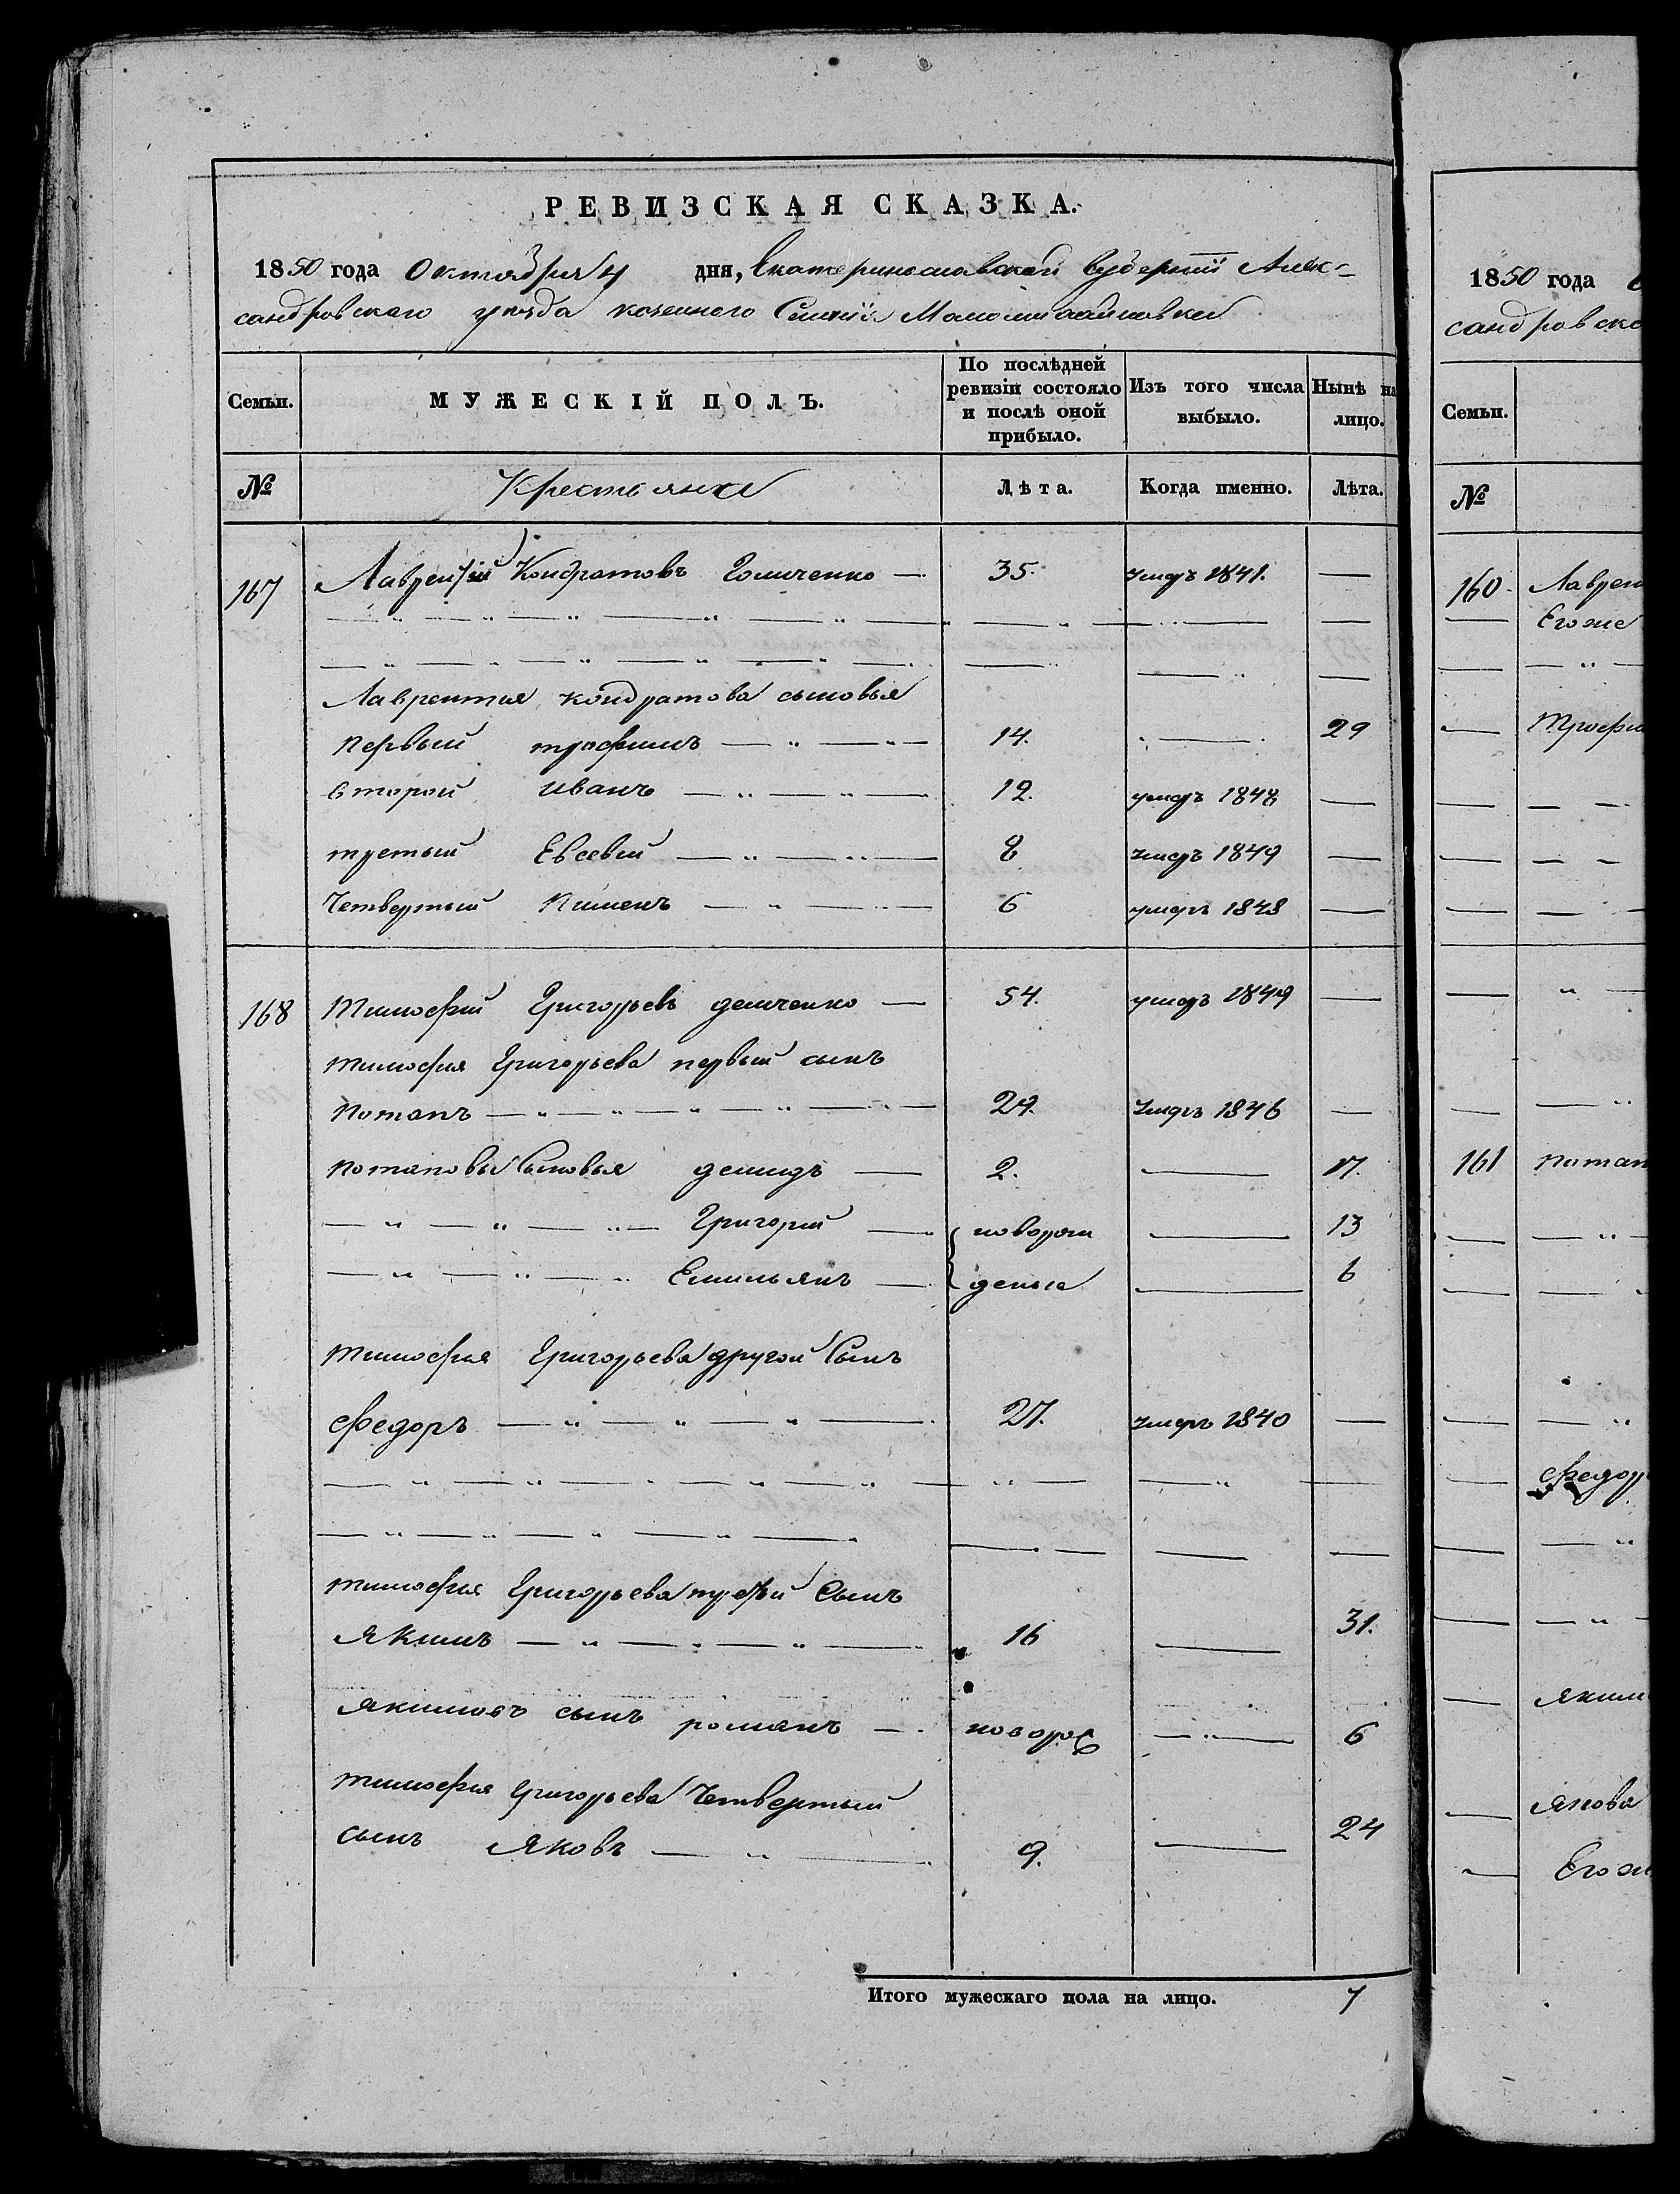 РЕВИЗСКАЯ СКАЗКА.
1850 года Октября 4 дня, Екатеринославской Губернии Алек-
сандровскаго уезда казенного Селенія Маломихайловки
Семьи. МУЖЕСКІЙ ПОЛЪ. По послѣдней ревизіи состояло и послѣ оной прибыло. Изъ того числа выбыло. Нынѣ на лицо.
№ Крестьяне Лѣта. Когда именно. Лѣта.
167 Лаврентій Кондратовъ Гомиченко — 35. умеръ 1841. —
Лаврентия Кондратова сыновья
первый трофимъ — 14. — 29
второй иванъ — 12. умеръ 1848 —
третий Евсевий — 8 умеръ 1849 —
Четвертый пименъ — 6 умеръ 1848 —
168 Тимофей Григорьевъ демченко — 54. умеръ 1849 —
тимофея Григорьева первый сынъ
потапъ — 29. умеръ 1846 —
потаповы Сыновья демидъ — 2. — 17.
Григорий — новорож — 13
Емильянъ — деные — 6
тимофея Григорьева другой Сынъ
Федоръ — 27. умеръ 1840 —
тимофея Григорьева третий Сынъ
Якимъ — 16 — 31.
Якимовъ сынъ романъ — новорож — 6
тимофея Григорьева Четвертый
сынъ Яковъ — 9. — 24
Итого мужескаго пола на лицо. 7
1850 года
сандровско
Семьи.
№
160 Лаврен
Его же
Трофи
161 потап
Федор
Яким
Якова
Его ж